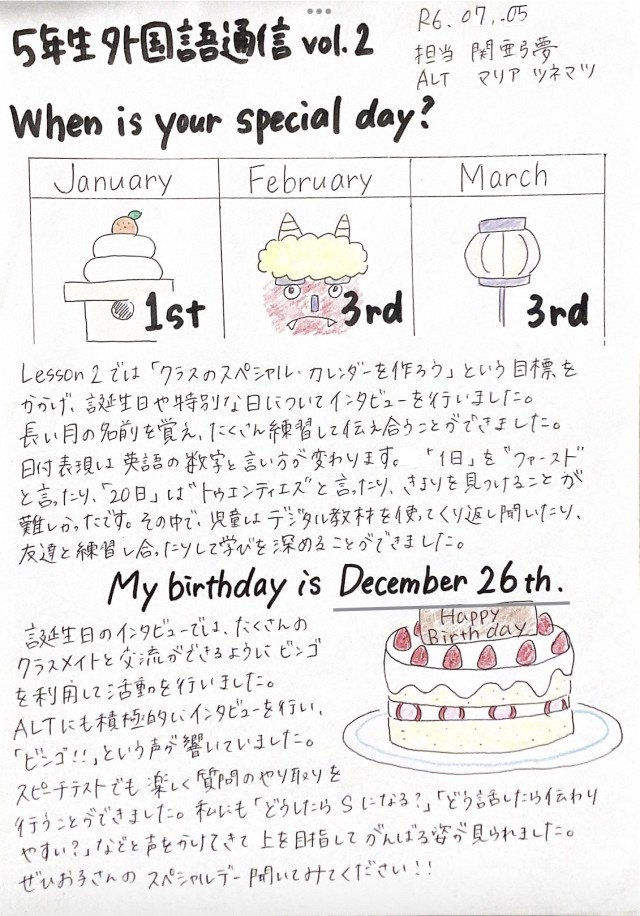 5年生外国語通信 vol.2
R6.07.05
担当 関 亜弓夢
ALT マリア ツネマツ
When is your special day?
January February March
1st 3rd 3rd
Lesson2では「クラスのスペシャル・カレンダーを作ろう」という目標を
かかげ、誕生日や特別な日についてインタビューを行いました。
長い月の名前を覚え、たくさん練習して伝え合うことができました。
日付表現は英語の数字と言い方が変わります。「1日」を"ファースド"
と言ったり、「20日」は"トゥエンティエズ"と言ったり、きまりを見つけることが
難しかったです。その中で、児童はデジタル教材を使ってくり返し聞いたり、
友達と練習し合ったりして学びを深めることができました。
My birthday is December 26th.
誕生日のインタビューでは、たくさんの
クラスメイトと交流ができるようにビンゴ
を利用して活動を行いました。
ALTにも積極的にインタビューを行い、
「ビンゴ!!」という声が響いていました。
スピーチテストでも楽しく質問のやり取りを
行うことができました。私にも「どうしたらSになる?」「どう話したら伝わり
やすい?」などと声をかけてきて上を目指してがんばる姿が見られました。
ぜひお子さんのスペシャルデー聞いてみてください!!
Happy
Birthday